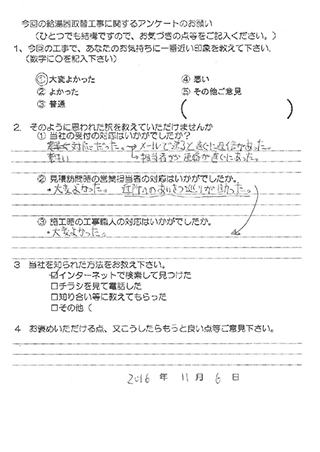 今回の給湯器取替工事に関するアンケートのお願い
(ひとつでも結構ですので、お気づきの点等をご記入ください。)
1、今回の工事で、あなたのお気持ちに一番近い印象を教えて下さい。
(数字に〇を記入下さい)
①大変よかった ④悪い
②よかった ⑤その他ご意見
③普通 ( )
2. そのように思われた訳を教えていただけませんか
①当社の受付の対応はいかがでしたか?
対応だった。→メールですぐに返信があった。
→担当者から連絡がすぐにあった。
②見積訪問時の営業担当者の対応はいかがでしたか。
・大変よかった。
③施工時の工事職人の対応はいかがでしたか。
・大変よかった。
3 当社を知られた方法をお教え下さい。
☑インターネットで検索して見つけた
□チラシを見て電話した
□知り合い等に教えてもらった
□その他(
4 お褒めいただける点、又こうしたらもっと良い点等ご意見下さい。
2016年 11月 6日